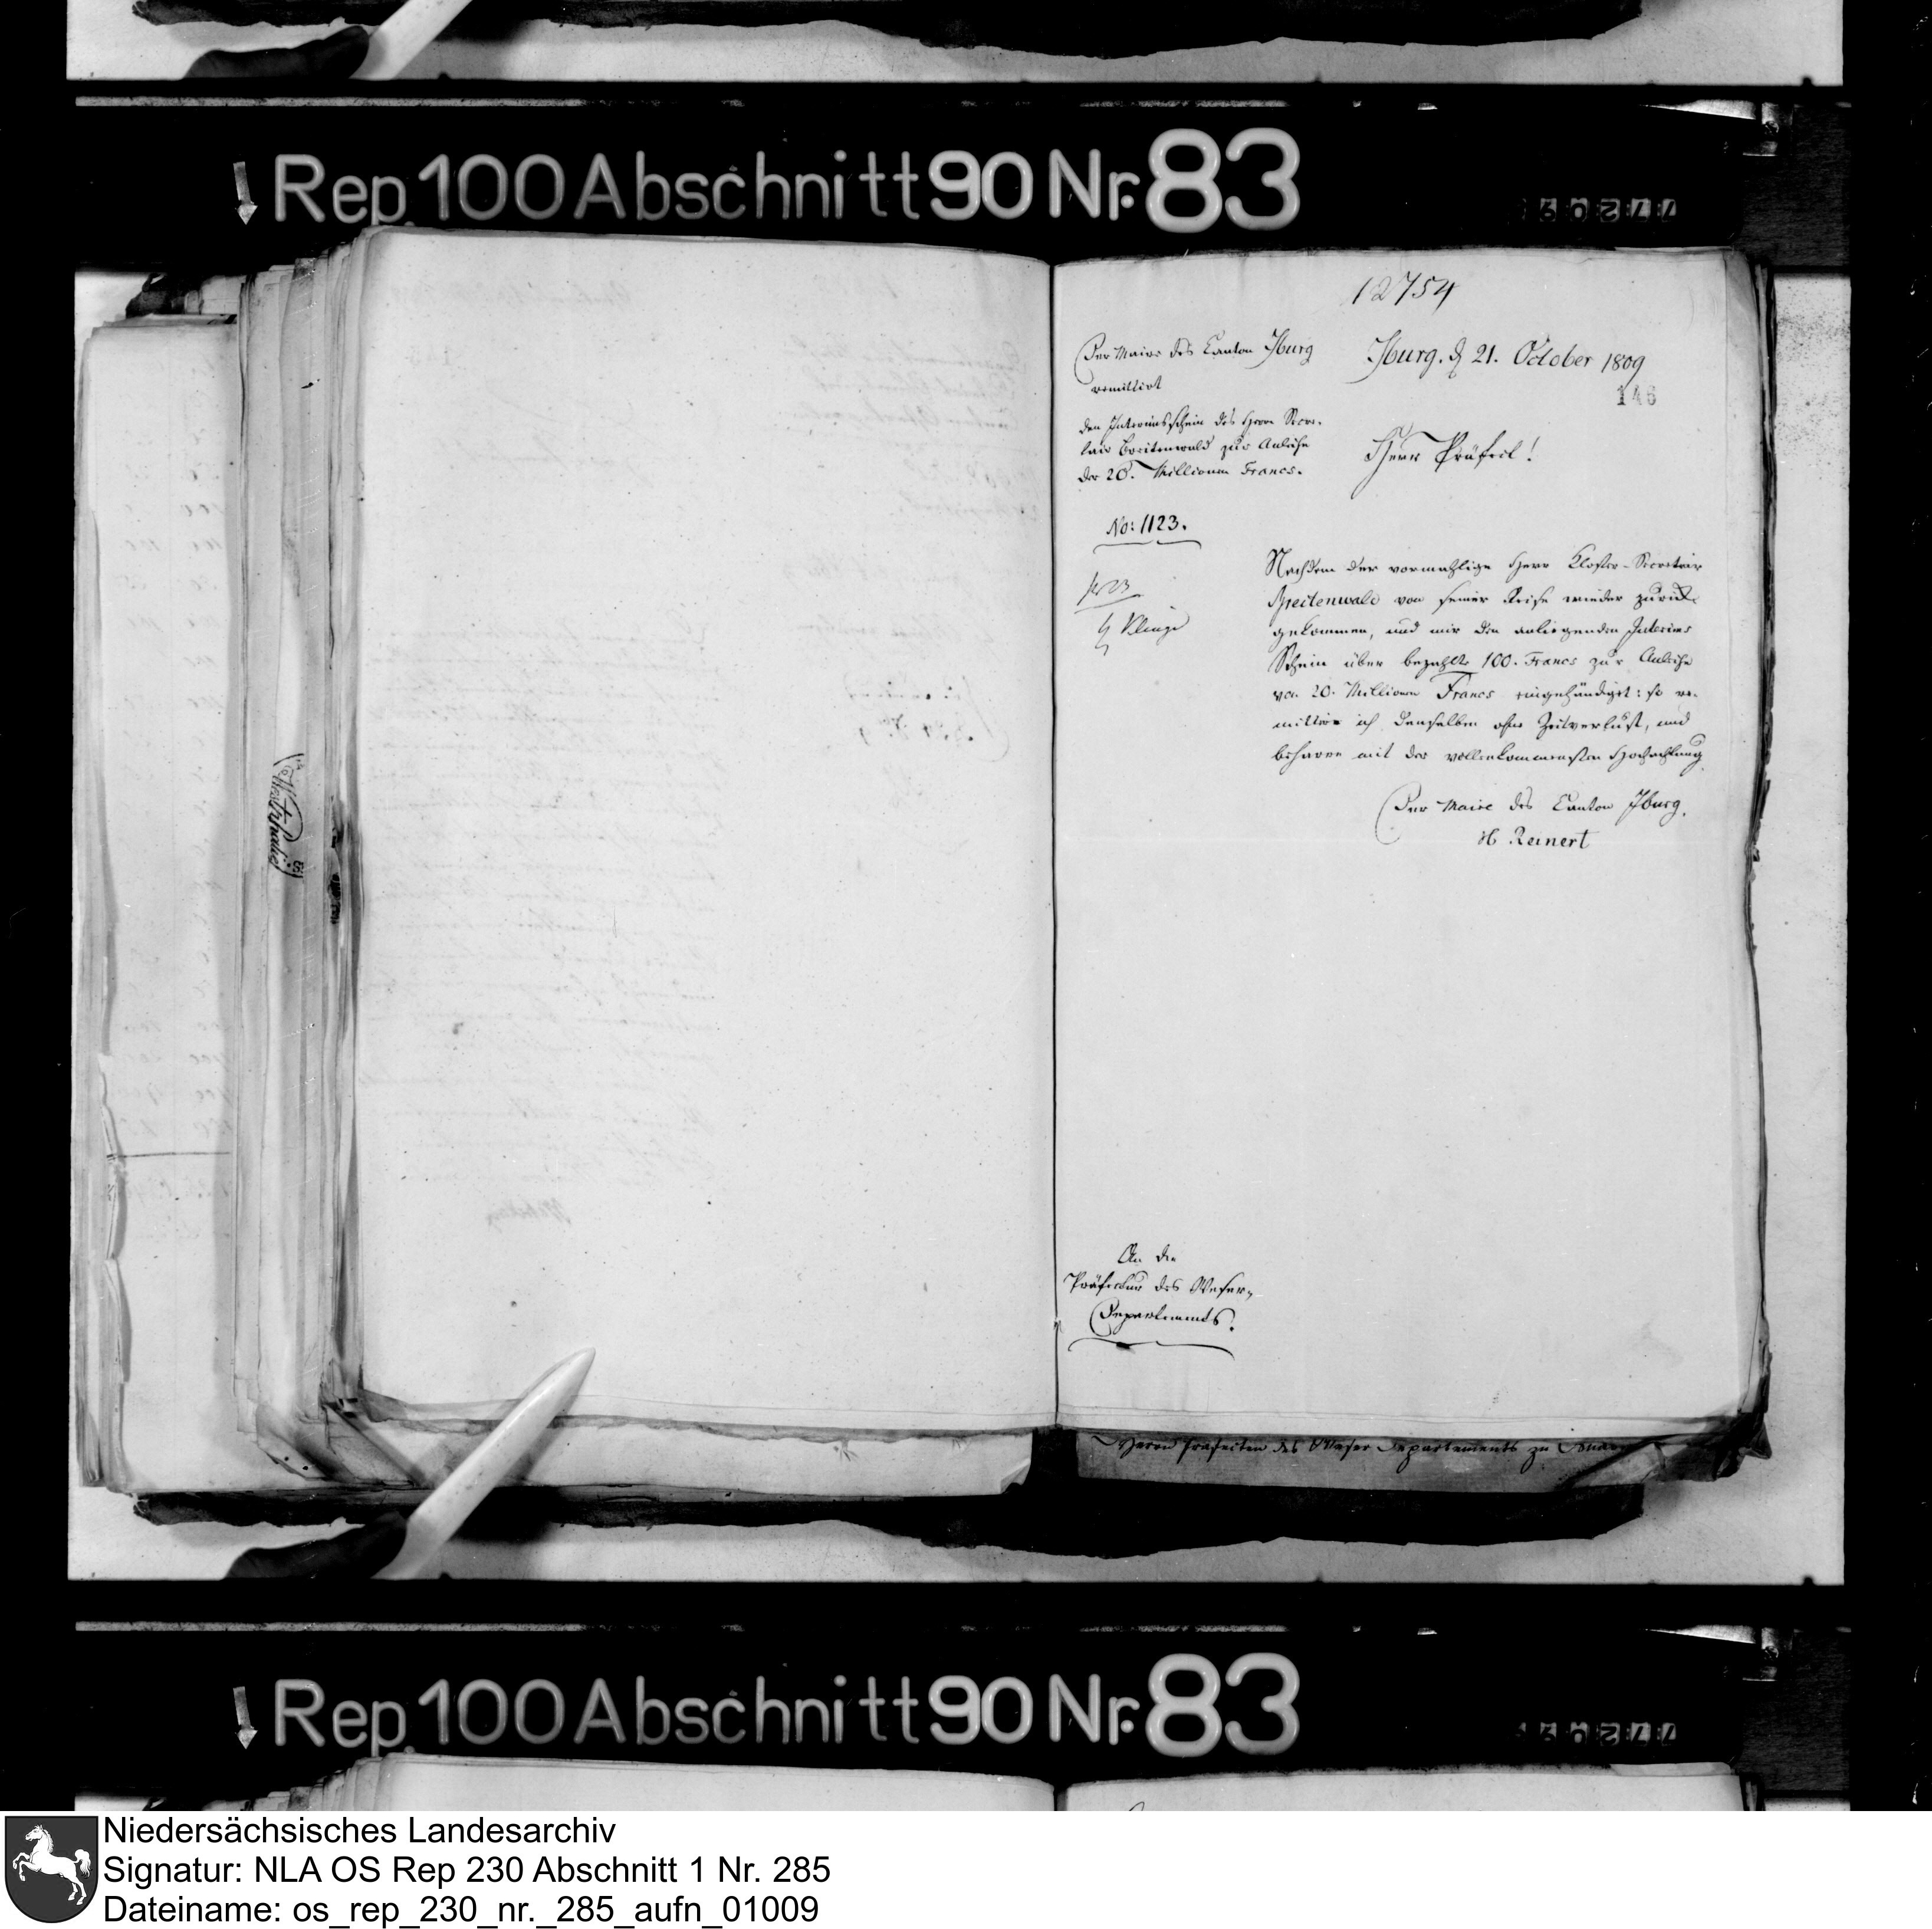 Rep. 100 Abschnitt 90 Nr. 83
12754
Der Maire des Canton Iburg
remittirt
den Interimsschein des Herrn Secre-
tair Breitenwald zur Anleihe
der 20. Millionen Francs.
No: 1123.
Iburg. d 21. October 1809
146
Herr Präfect!
Nachdem der vormahlige Herr Kloster-Secretair
Breitenwald von seiner Reise wieder zurück
gekommen, und mir den anliegenden Interims
Schein über bezahlte 100. Francs zur Anleihe
von 20. Millionen Francs eingehändigt: so re-
mittire ich denselben ohne Zeitverlust, und
beharre mit der vollenkommensten Hochachtung
Der Maire des Canton Iburg.
H Reinert
An die
Präfectur des Weser-
Departements.
Herrn Präfecten des Weser Departements zu
Rep. 100 Abschnitt 90 Nr. 83
Niedersächsisches Landesarchiv
Signatur: NLA OS Rep 230 Abschnitt 1 Nr. 285
Dateiname: os_rep_230_nr._285_aufn_01009